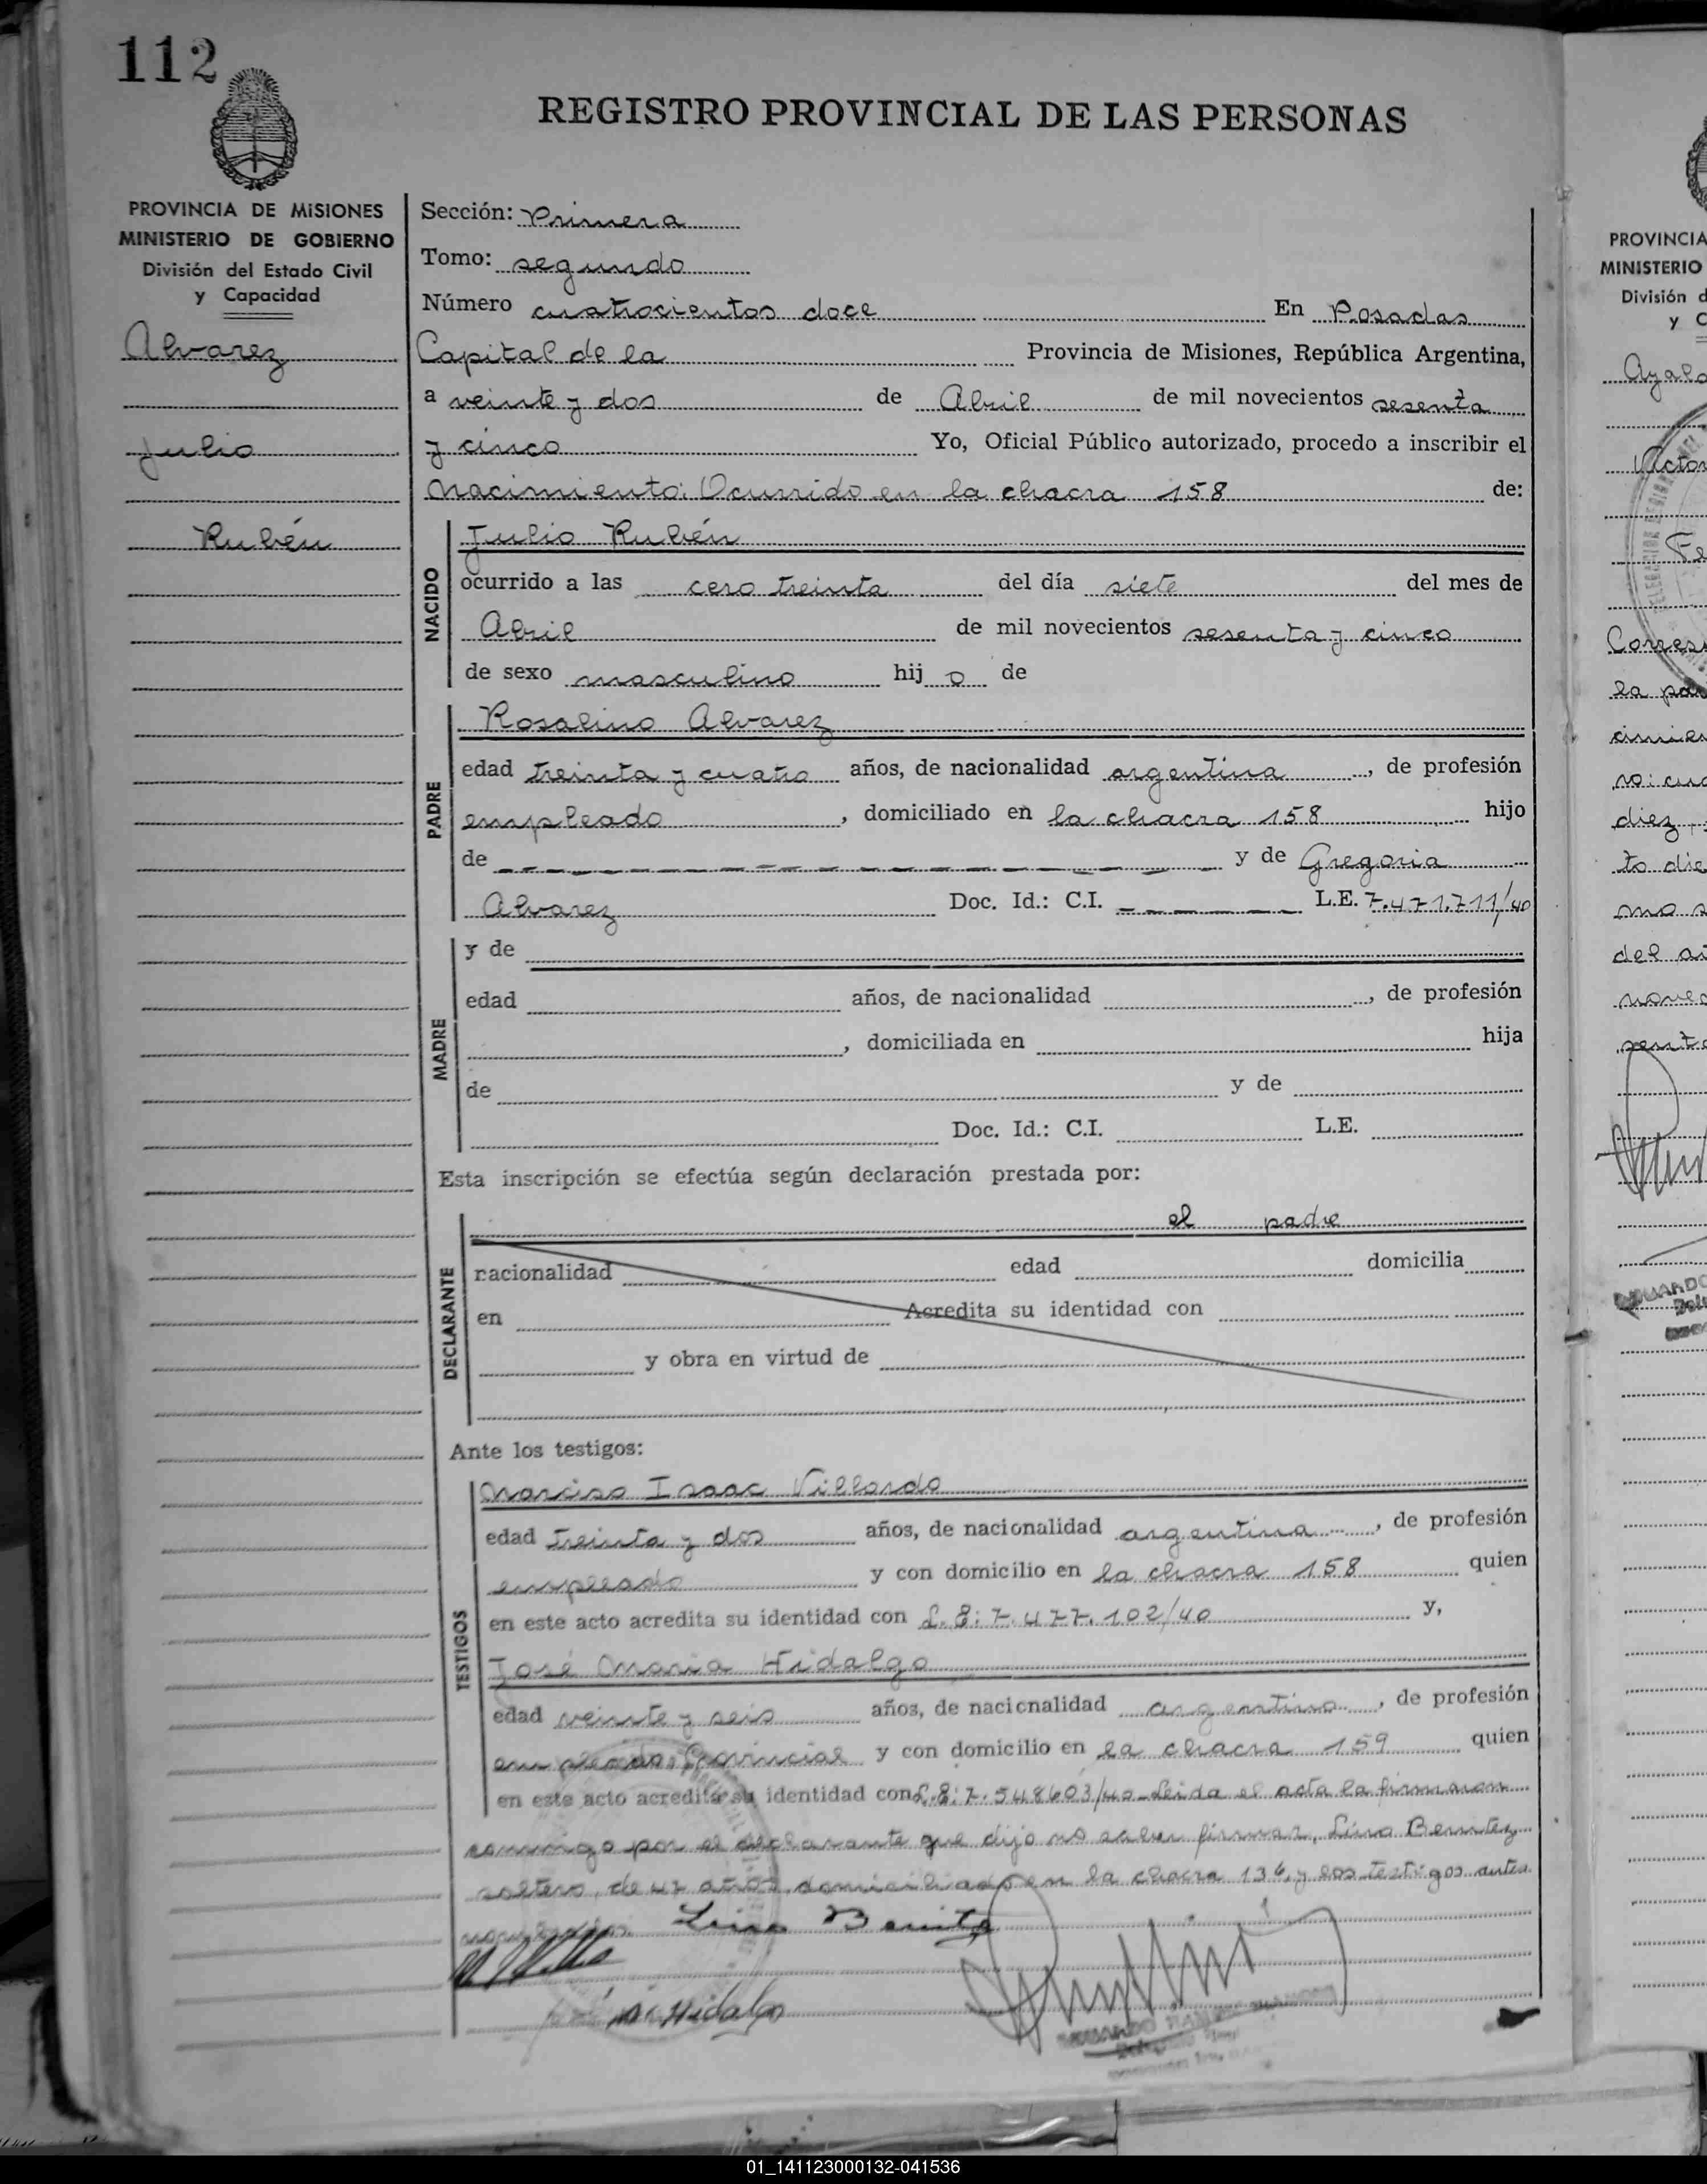 112
REGISTRO PROVINCIAL DE LAS PERSONAS
PROVINCIA DE MISIONES
MINISTERIO DE GOBIERNO
División del Estado Civil
y Capacidad
Alvarez
Julio
Rubén
Sección: Primera
Tomo: segundo
Número cuatrocientos doce En Posadas
Capital de la Provincia de Misiones, República Argentina,
a veinte y dos de Abril de mil novecientos sesenta
y cinco Yo, Oficial Público autorizado, procedo a inscribir el
nacimiento: Ocurrido en la chacra 158 de:
NACIDO
Julio Rubén
ocurrido a las cero treinta del día siete del mes de
Abril de mil novecientos sesenta y cinco
de sexo masculino hij o de
PADRE
Rosalino Alvarez
edad treinta y cuatro años, de nacionalidad argentina, de profesión
empleado, domiciliado en la chacra 158 hijo
de y de Gregoria
Alvarez Doc. Id.: C.I. L.E. 7.471.711/40
MADRE
y de
edad años, de nacionalidad , de profesión
, domiciliada en hija
de y de
Doc. Id.: C.I. L.E.
Esta inscripción se efectúa según declaración prestada por:
el padre
DECLARANTE
nacionalidad edad domicilia
en Acredita su identidad con
y obra en virtud de
Ante los testigos:
TESTIGOS
Narciso Isaac Villordo
edad treinta y dos años, de nacionalidad argentina, de profesión
empleado y con domicilio en la chacra 158 quien
en este acto acredita su identidad con L.E: 7.477.102/40 y,
José Maria Hidalgo
edad veinte y seis años, de nacionalidad argentino, de profesión
empleado Provincial y con domicilio en la chacra 159 quien
en este acto acredita su identidad con L.E: 7.548603/40 Leida el acta la firmaron
conmigo por el declarante que dijo no saber firmar, Lino Benitez
soltero, de 42 años domiciliado en la chacra 136, y los testigos antes
Lino Benitez
Hidalgo
PROVINCIA
MINISTERIO
División d
y C
Ayala
Victor
Fe
Corres
la pa
cimien
ro: cua
diez,
to die
mo s
del a
novec
senta
01_141123000132-041536